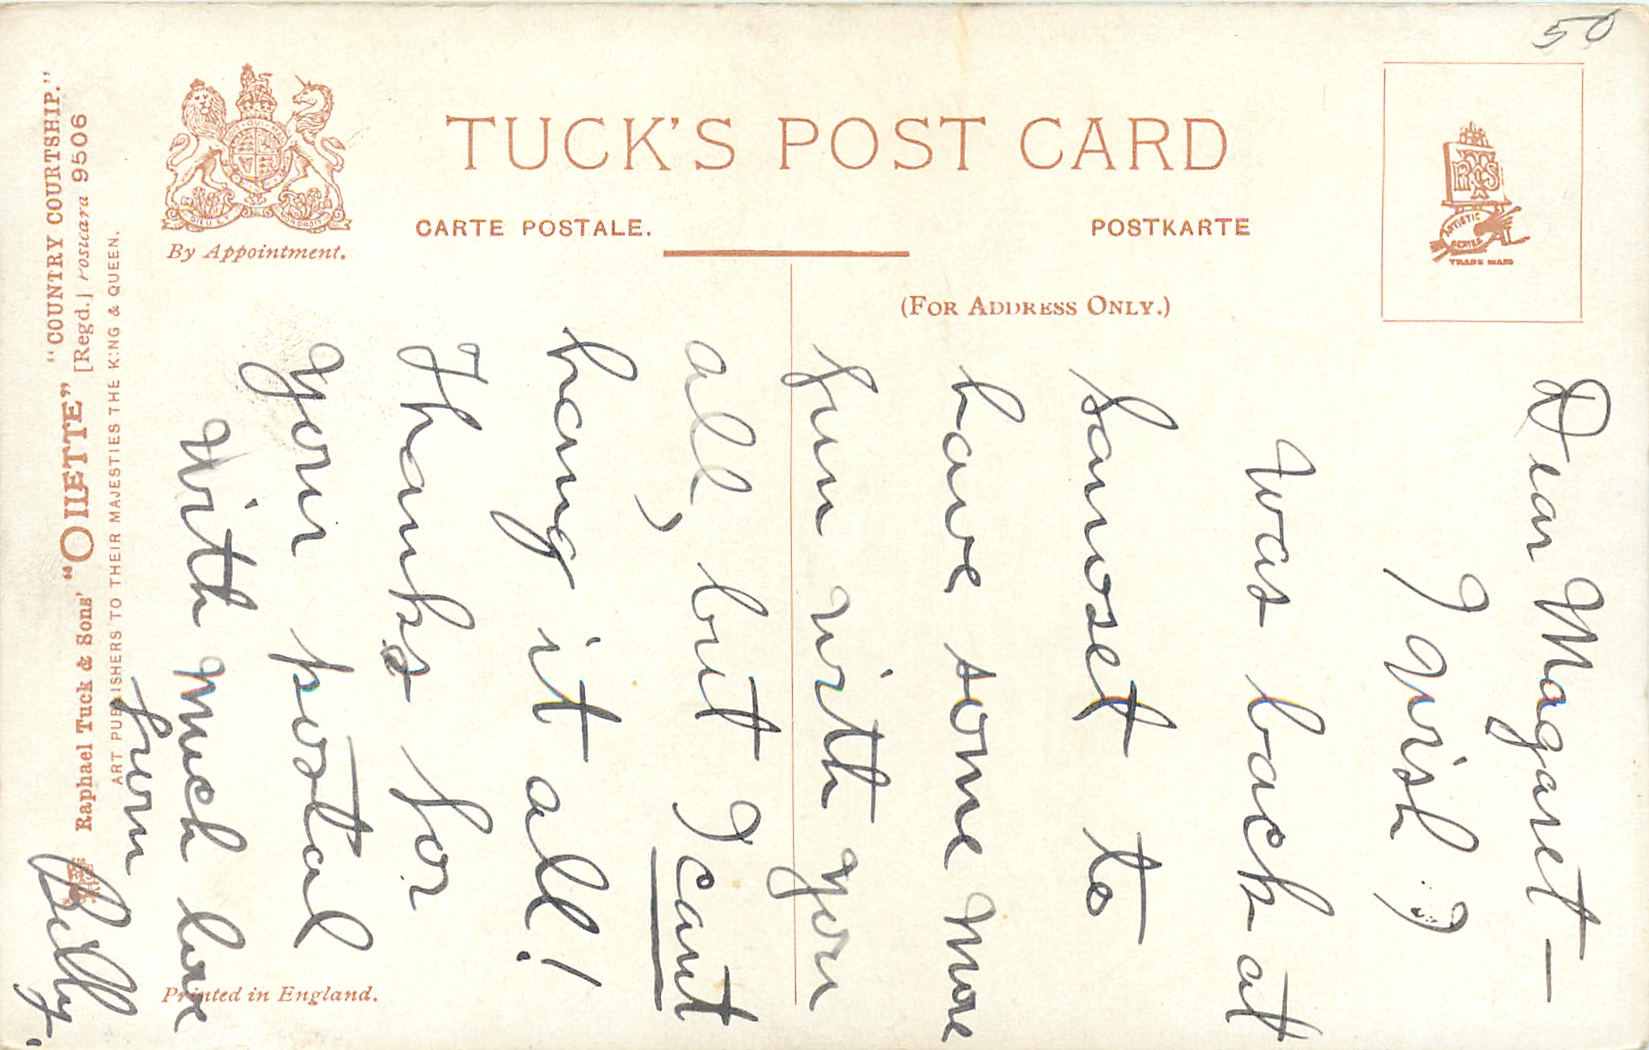 50
TUCK'S POST CARD
CARTE POSTALE.
POSTKARTE
By Appointment.
(FOR ADDRESS ONLY.)
RTS
ARTISTIC SERIES
TRADE MARK
"COUNTRY COURTSHIP."
Raphael Tuck & Sons' "OILETTE" [Regd.] Postcard 9506
ART PUBLISHERS TO THEIR MAJESTIES THE KING & QUEEN.
Printed in England.
Dear Magaret—
I wish I
was back at
to
have some more
fun with you
all, but I cant
hang it all!
Thanks for
your postal
With much love
from
Billy.